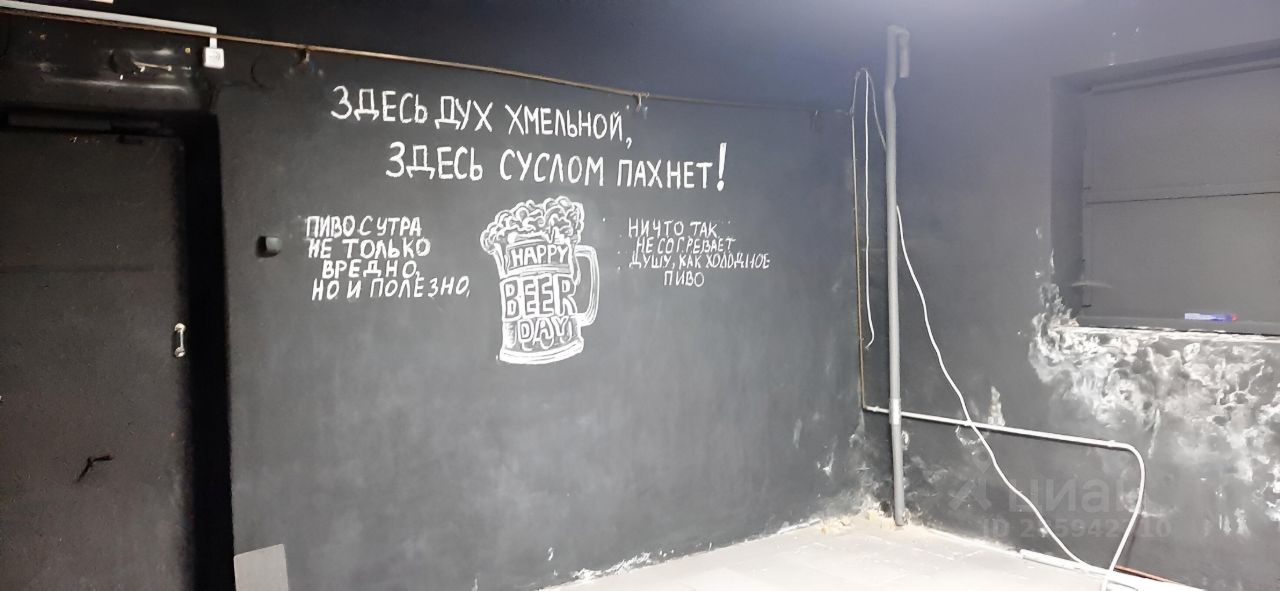 ЗДЕСЬ ДУХ ХМЕЛЬНОЙ,
ЗДЕСЬ СУСЛОМ ПАХНЕТ!
ПИВО С УТРА
НЕ ТОЛЬКО
ВРЕДНО,
НО И ПОЛЕЗНО,
HAPPY
BEER
DAY
НИЧТО ТАК
НЕ СОГРЕВАЕТ
ДУШУ, КАК ХОЛОДНОЕ
ПИВО
циан